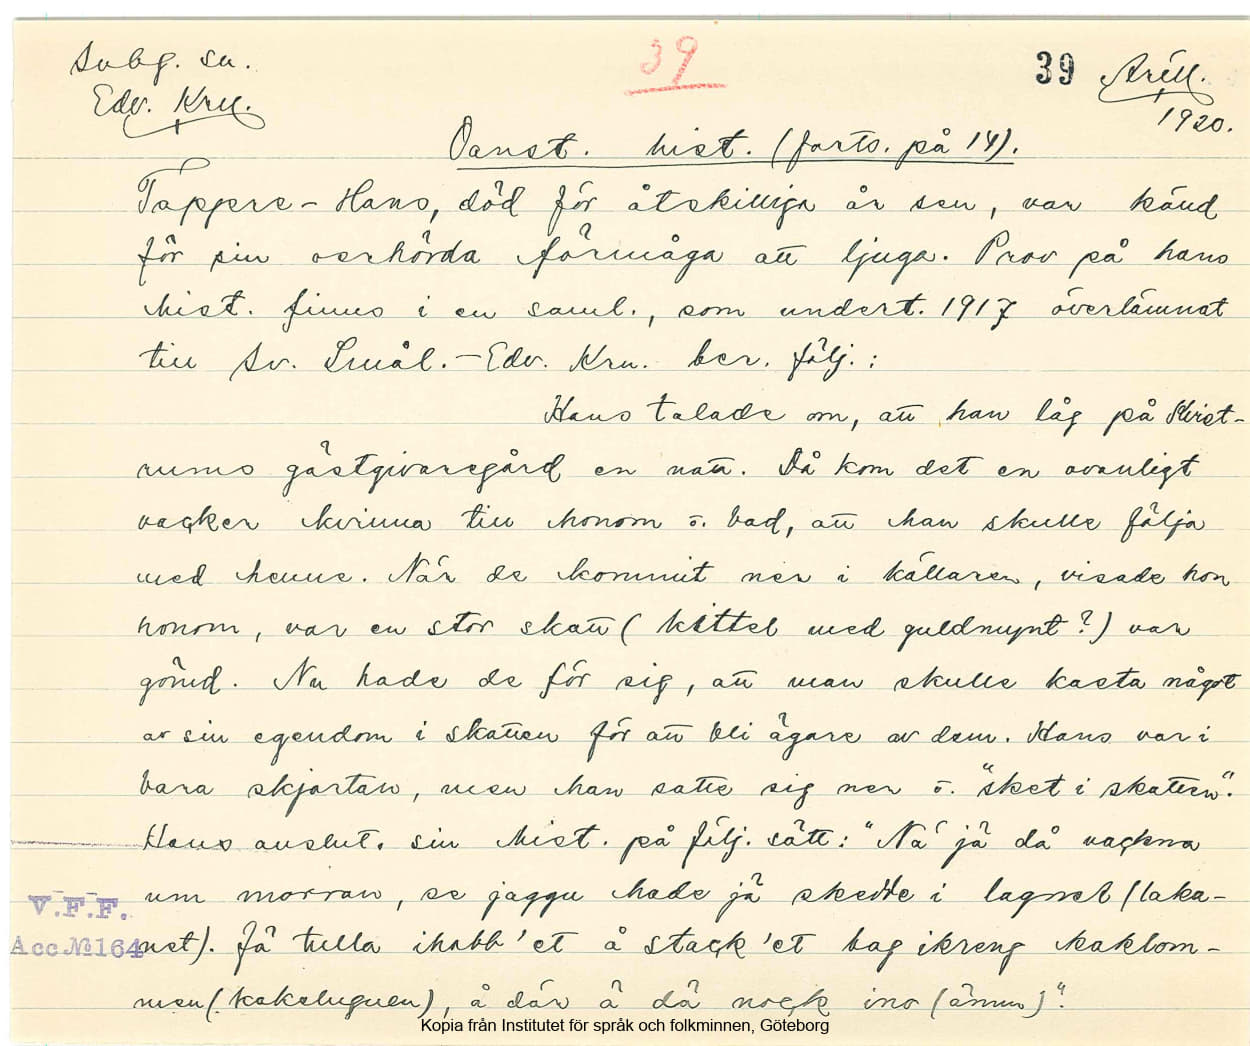 Svbg. sn.
Edv. Krn.
39
39
Arill.
1920.
Oanst. hist. (forts. på 14).
Tappere-Hans, död för åtskilliga år sen, var känd
för sin oerhörda förmåga att ljuga. Prov på hans
hist. finns i en saml., som undert. 1917 överlämnat
till Sv. Smål. - Edv. Krn. ber. följ.:
Hans talade om, att han låg på Kvist-
rums gästgivaregård en natt. Då kom det en ovanligt
vacker kvinna till honom o. bad, att han skulle följa
med henne. När de kommit ner i källaren, visade hon
honom, var en stor skatt (kittel med guldmynt?) var
gömd. Nu hade de för sig, att man skulle kasta något
av sin egendom i skatten för att bli ägare av dem. Hans var i
bara skjortan, men han satte sig ner o. "sket i skatten".
Hans anslut. sin hist. på följ. sätt: "Nä jä då vackna
um morran, se jaggu hade jä skedde i lagnet (laka-
net). Jä tulla ihobb 'et å stack 'et bag ikreng kaklom-
men (kakelugnen), å där ä dä nock ino (ännu)".
V.F.F.
Acc.No 164
Kopia från Institutet för språk och folkminnen, Göteborg